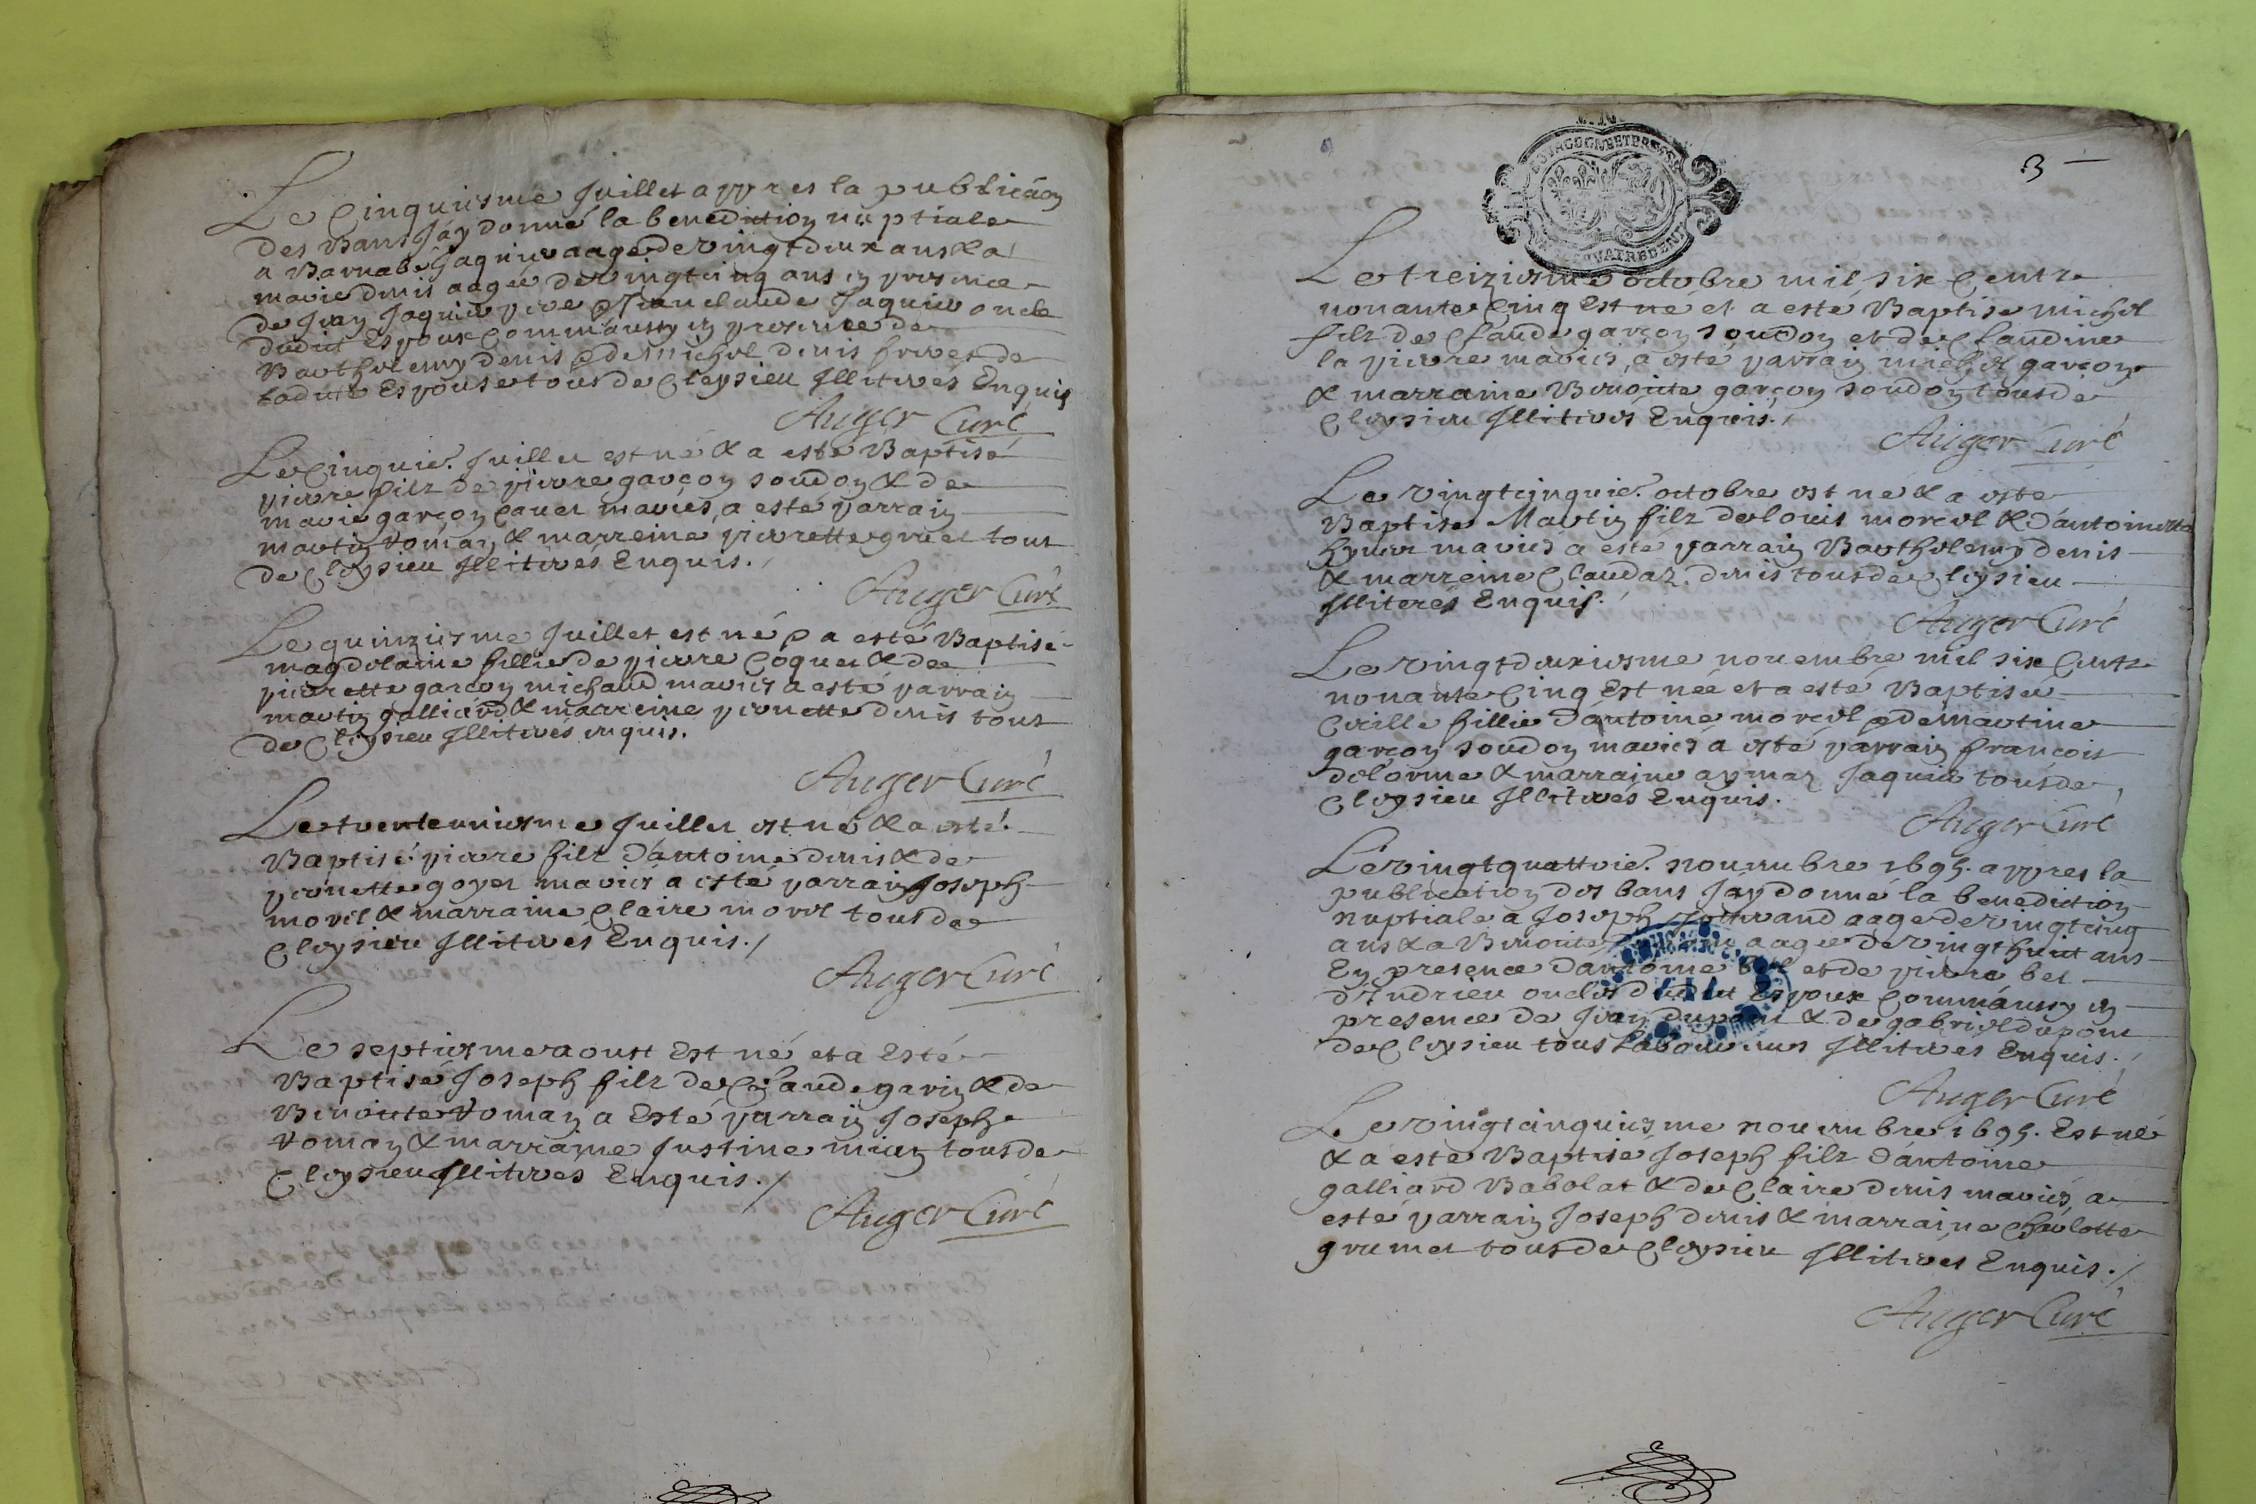 Le Cinquiesme Juillet appres la publicãon
des Bans Jay donné la benediction nuptiale
a Barnabé Jaquier aagé de vingt deux ans & a
marie denis aagée de vingtcinq ans en presence
de Jean Jaquier pere & Jean claude Jaquier oncle
dudit Espoux Comm'aussy en presence de
Barthelemy denis & de michel denis freres de
ladite Espouse tous de Cleysieu Illiterés Enquis
Auger Curé
Le Cinquie.e Juillet est né & a esté Baptisé
pierre filz de pierre garçon soudon & de
marie garçon Cauet mariés, a esté parrain
martin Roman & marreine pierrette gruet tous
de Cleysieu Illiterés Enquis./
Auger Curé
Le quinziesme Juillet est né & a esté Baptisé
magdelaine fillie de pierre Coquet & de
pierrette garçon michaud mariés a esté parrain
martin galliard & marreine pernette denis tous
de Cleysieu Illiterés enquis.
Auger Curé
Le trenteuniesme Juillet est né & a esté
Baptisé pierre filz d'antoine denis & de
pernette goyet mariés a esté parrain Joseph
morel & marraine Claire morel tous de
Cleysieu Illiterés Enquis./
Auger Curé
Le septiesme aoust Est né et a Esté
Baptisé Joseph filz de Claude garin & de
Benoite Roman a Esté parrain Joseph
Roman & marraine Justine mien tous de
Cleysieu Illiteres Enquis./
Auger Curé
3
Le treiziesme octobre mil six Centz
nonante Cinq Est né et a esté Baptise michel
filz de Claude garçon soudon et de Claudine
la pierre mariés, a esté parrain michel garçon
& marraine Benoite garçon soudon tous de
Cleysieu Illiteres Enquis./
Auger Curé
Le vingtcinquie.e octobre est né & a esté
Baptisé Martin filz de louis morel & d'antoinette
hyuer mariés a esté parrain Barthelemy denis
& marreine Claudaz denis tous de Cleysieu
Illiterés Enquis./
Auger Curé
Le vingtdeuxiesme nouembre mil six Centz
nonante Cinq Est née et a esté Baptisée
Cirille fillie d'antoine morel & de martine
garçon soudon mariés a esté parrain françois
delorme & marraine aymaz Jaquier tous de
Cleysieu Illiterés Enquis.
Auger Curé
Le vingtquattrie.e nouembre 1695. appres la
publication des bans Jay donné la benediction
nuptiale a Joseph aage de vingtcinq
ans & a Benoite aagée de vingthuit ans
En presence d'antoine bel et de pierre bel
d'Andrieu oncles dudit Espoux Comm'aussy en
presence de Jean dupont & de gabriel dupont
de Cleysieu tous Laboureurs Illiteres Enquis./
Auger Curé
Le vingtcinquiesme nouembre 1695. Est né
& a esté Baptisé Joseph filz d'antoine
galliard Babolat & de Claire denis mariés, a
esté parrain Joseph denis & marraine Charlotte
grumet tous de Cleysieu Illiteres Enquis./
Auger Curé